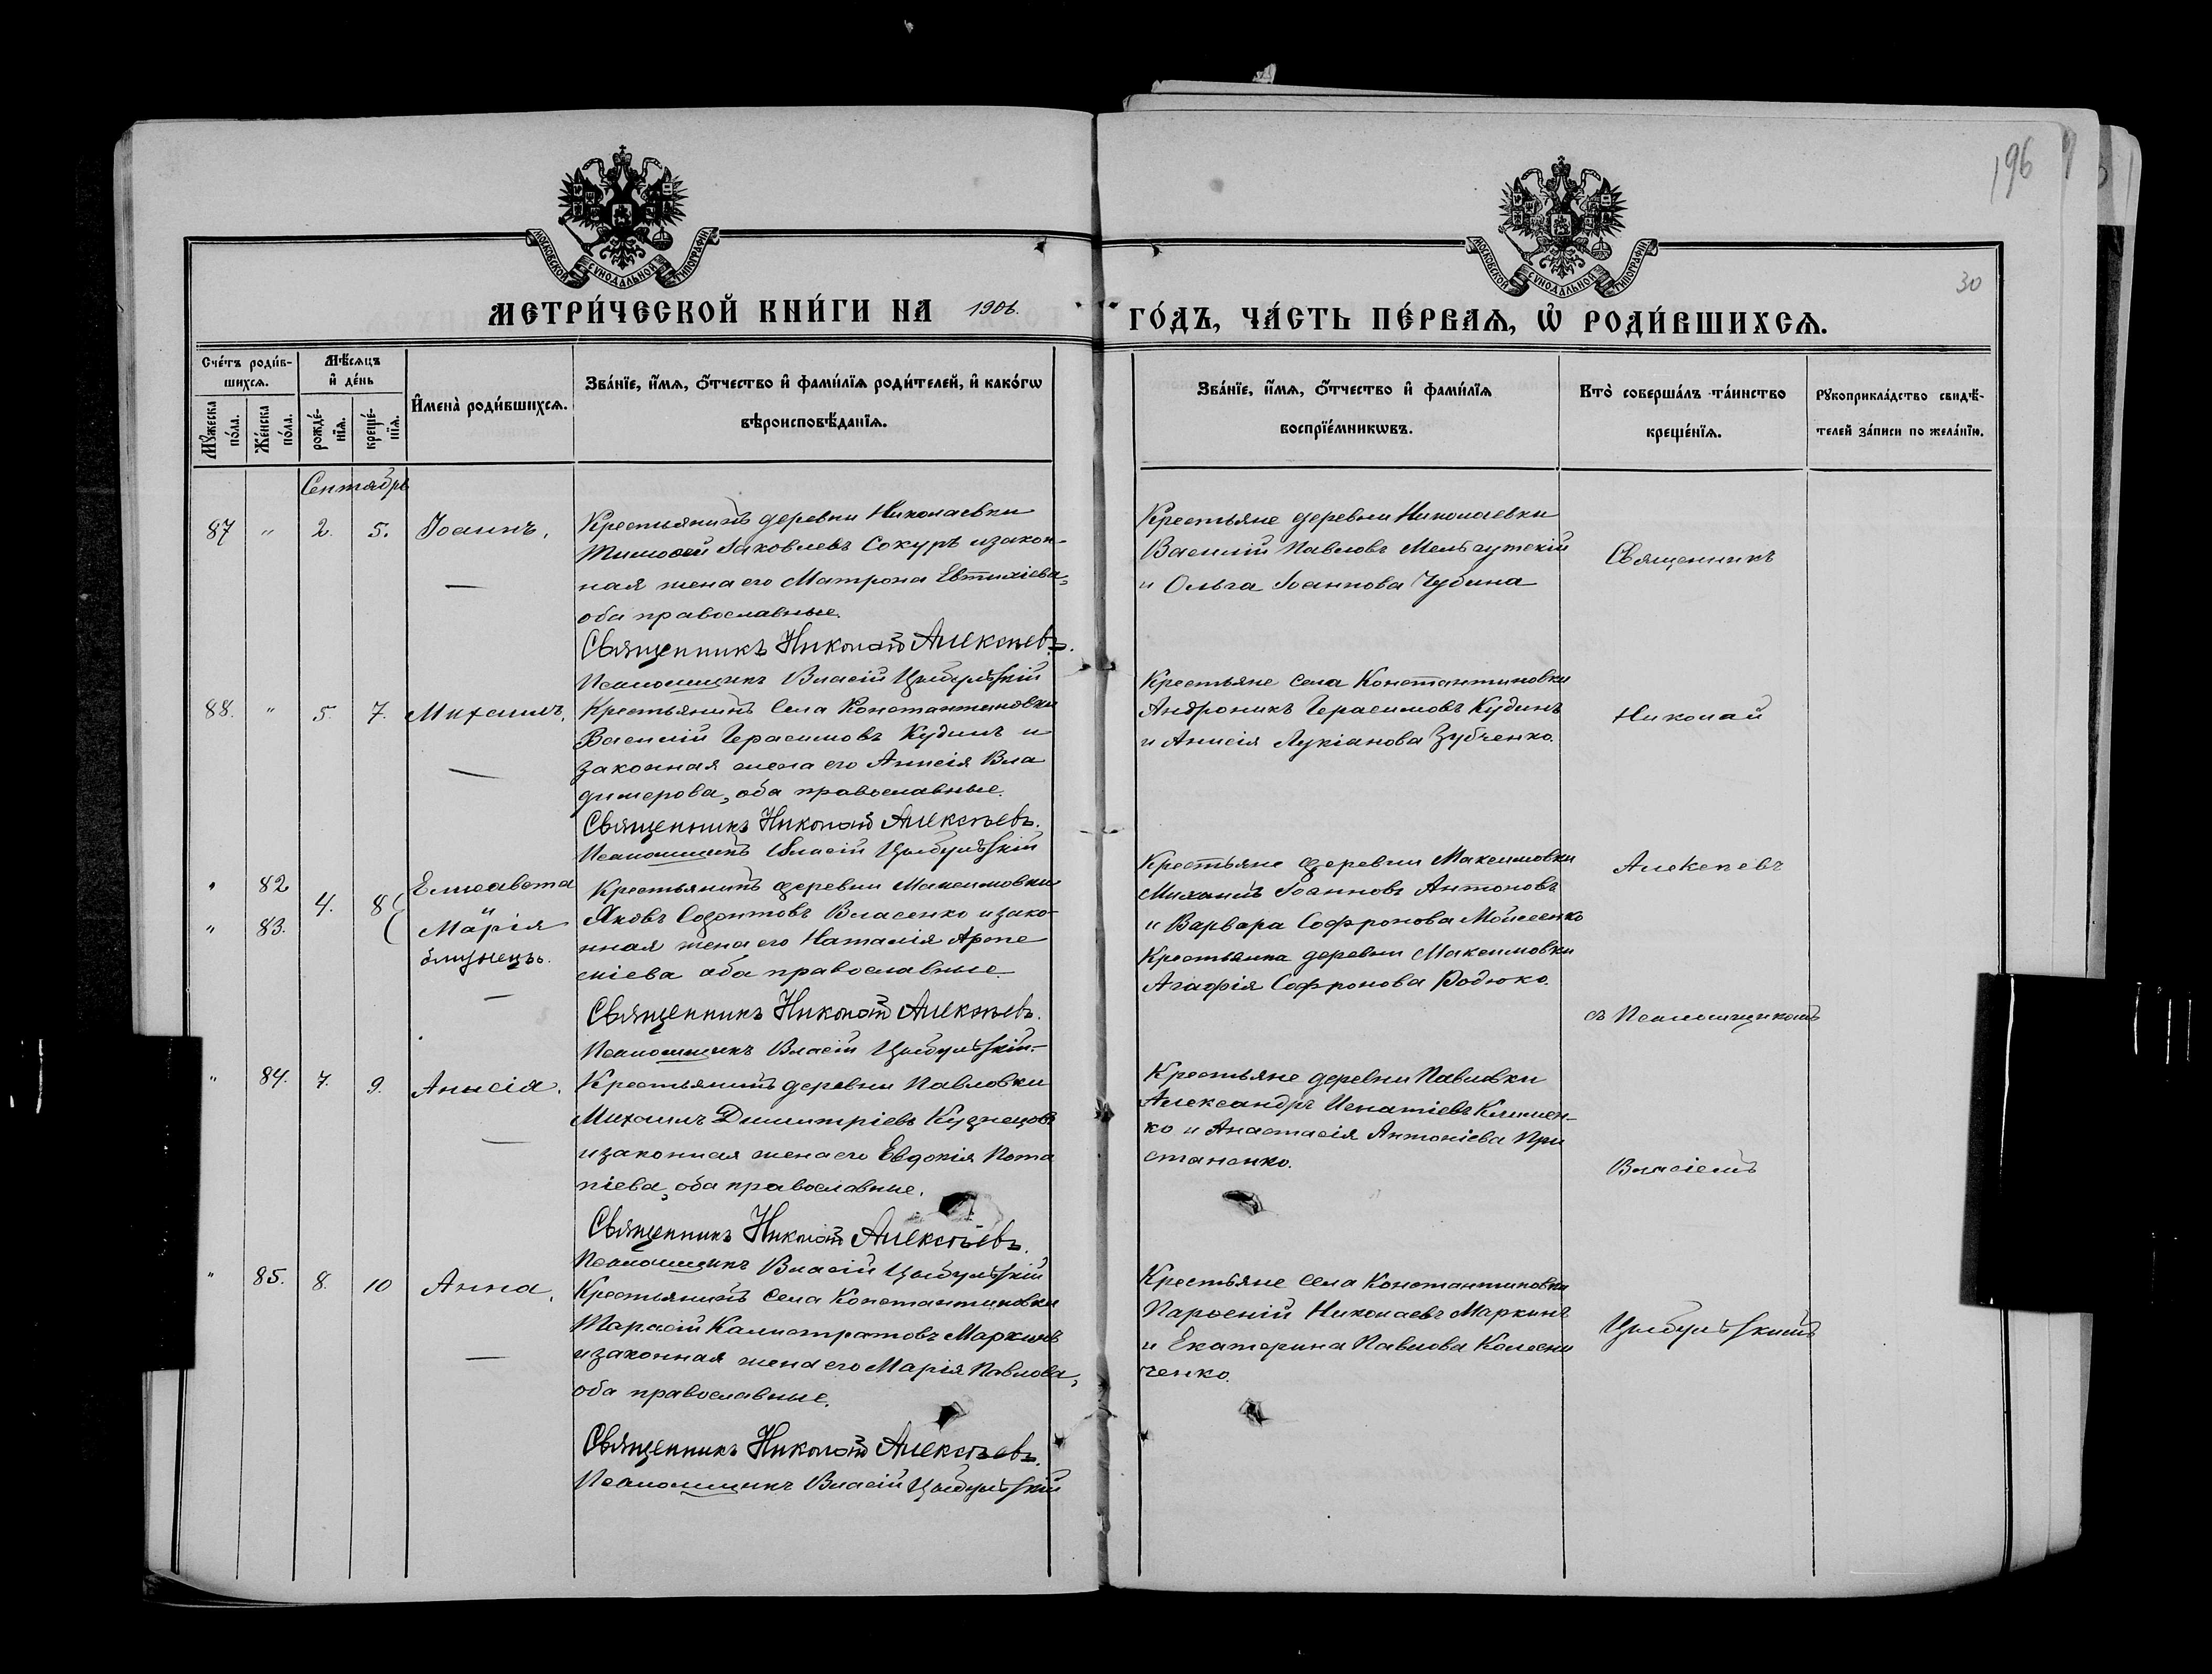 196
30
МОСКОВСКОЙ СѴНОДАЛЬНОЙ ТИПОГРАФІИ
МОСКОВСКОЙ СѴНОДАЛЬНОЙ ТИПОГРАФІИ
МЕТРИ́ЧЕСКОЙ КНИ́ГИ НА 1906.
ГО́ДЪ, ЧА́СТЬ ПЕ́РВАѦ, Ѡ҆ РОДИ́ВШИХСѦ.
Сче́тъ роди́в-
шихсѧ.
Мѣ́сѧцъ
и҆ де́нь
Мꙋ́жеска
по́ла.
Же́нска
по́ла.
рожде́-
нїѧ.
креще́-
нїѧ.
И҆мена̀ роди́вшихсѧ.
Зва́нїе, и҆́мѧ, ѻ҆́тчество и҆ фами́лїѧ роди́телей, и҆ како́гѡ
вѣроисповѣ́данїѧ.
Зва́нїе, и҆́мѧ, ѻ҆́тчество и҆ фами́лїѧ
воспрїе́мникѡвъ.
Кто̀ соверша́лъ та́инство
креще́нїѧ.
Рꙋкоприкла́дство свидѣ́-
телей за́писи по жела́нїю.
Сентябрь
87 " 2. 5. Іоаннъ.
Крестьянинъ деревни Николаевки
Тимоѳей Іаковлевъ Сокуръ и закон-
ная жена его Матрона Евтихіева,
оба православные.
Священникъ Николай Алексѣевъ.
Псаломщикъ Власій Цыбульскій
Крестьяне деревни Николаевки
Василій Павловъ
и Ольга Іоаннова Чубина
88. " 5. 7. Михаилъ.
Крестьянинъ села Константиновки
Василій Герасимовъ Кудинъ и
законная жена его Анисія Вла
димерова, оба православные.
Священникъ Николай Алексѣевъ.
Псаломщикъ Власій Цыбульскій
Крестьяне села Константиновки
Андроникъ Герасимовъ Кудинъ
и Анисія Лукіанова Зубченко.
" 82 4. 8 Елисавета
и
" 83. Марія
близнецы.
Крестьянинъ деревни Максимовки
Яковъ Созонтовъ Власенко и зако-
нная жена его Наталія Арте
міева оба православные.
Священникъ Николай Алексѣевъ.
Псаломщикъ Власій Цыбульскій.
Крестьяне деревни Максимовки
Михаилъ Іоанновъ Антоновъ
и Варвара Софронова Мойсеенко
Крестьянка деревни Максимовки
Агафія Софронова
" 84. 7. 9. Анисія.
Крестьянинъ деревни Павловки
Михаилъ Димитріевъ Кузнецовъ
и законная жена его Евдокія Пота
піева, оба православные.
Священникъ Николай Алексѣевъ.
Псаломщикъ Власій Цыбульскій
Крестьяне деревни Павловки
Александръ Игнатіевъ Климен-
ко и Анастасія Антоніева При
стансико.
" 85. 8. 10 Анна.
Крестьянинъ села Константиновки
Тарасій Калистратовъ Маркинъ
и законная жена его Марія Павлова,
оба православные.
Священникъ Николай Алексѣевъ.
Псаломщикъ Власій Цыбульскій
Крестьяне села Константиновки
Парѳеній Николаевъ Маркинъ
и Екатерина Павлова Колесни
ченко.
Священникъ
Николай
Алексѣевъ
съ Псаломщикомъ
Власіемъ
Цыбульскимъ